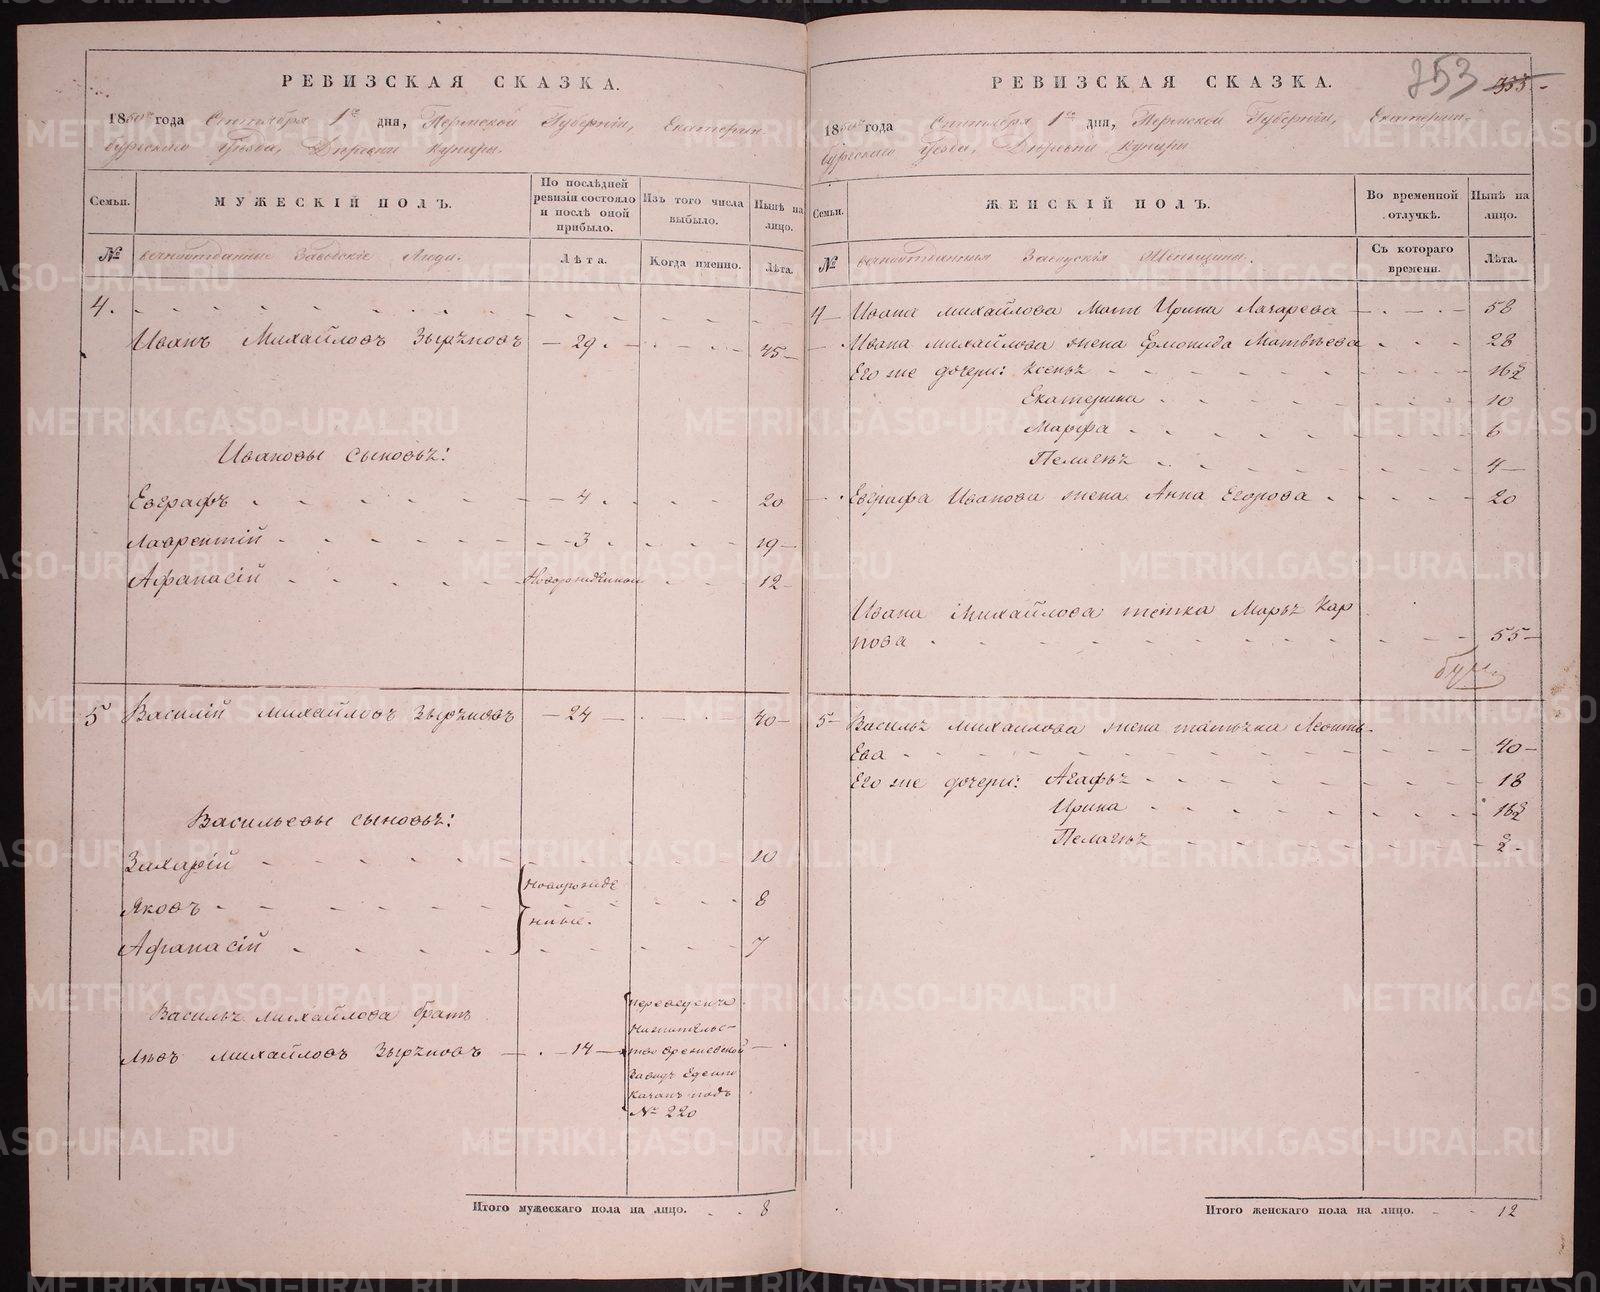 РЕВИЗСКАЯ СКАЗКА.
1850го года Сентября 1го дня, Пермской Губерніи, Екатерин
бургскаго Уезда, Деревни Кунары.
Семьи.
МУЖЕСКІЙ ПОЛЪ.
По послѣдней ревизіи состояло и послѣ оной прибыло.
Изъ того числа выбыло.
Нынѣ на лицо.
№
вечноотданные Заводскіе Люди.
Лѣта.
Когда именно.
Лѣта.
4.
Иванъ Михайловъ Зыряновъ 29 45
Ивановы сыновья:
Евграфъ 4 20
Лаврентій 3 19
Афанасій Новорожденной 12
5 Василій Михайловъ Зыряновъ 24 40
Васильевы сыновья:
Захарій 10
Новорожде
Яковъ 8
нные.
Афанасій 7
Василья Михайлова братъ
Левъ Михайловъ Зыряновъ 14
переведенъ
на жительс-
тво
заводъ
под
№ 220
Итого мужескаго пола на лицо. 8
РЕВИЗСКАЯ СКАЗКА.
353
1850го года Сентября 1го дня, Пермской Губерніи, Екатерин-
бургскаго Уезда, Деревни Кунары
Семьи.
ЖЕНСКІЙ ПОЛЪ.
Во временной отлучкѣ.
Нынѣ на лицо.
№
вечноотданныя Заводскія Женьщины.
Съ котораго времени.
Лѣта.
4 Ивана Михайлова Мать Ирина Лазарева 58
Ивана Михайлова жена Ермонида Матвѣева 28
Его же дочери: Ксенья 16½
Екатерина 10
Марфа 6
Пелагея 4
Евграфа Иванова жена Анна Егорова 20
Ивана Михайлова тетка Марья Кар
пова 55
5 Василья Михайлова жена Татьяна Леонть-
Ева 40
Его же дочери: Агафья 18
Ирина 16½
Пелагея ½
Итого женскаго пола на лицо. 12
METRIKI.GASO-URAL.RU